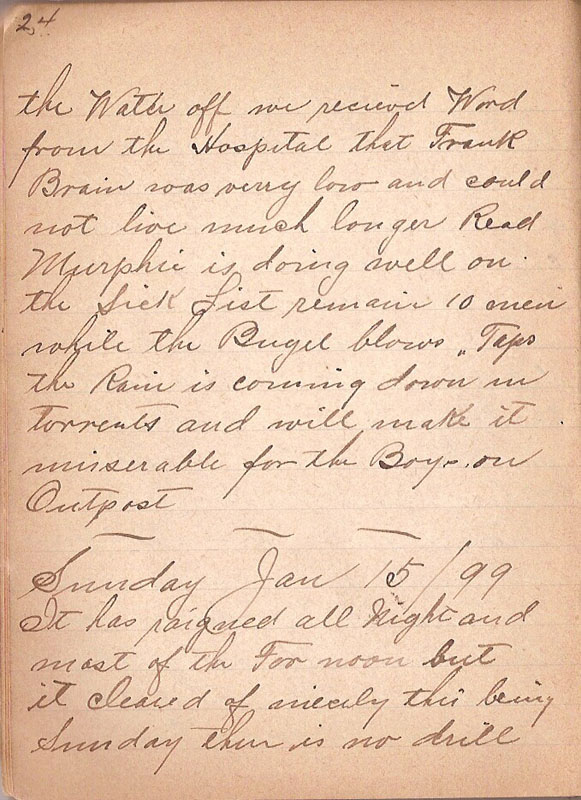 24
the Water off we recievd Word
from the Hospital that Frank
Brain was verry low and could
not live much longer Read
Murphie is doing well on
the Sick List remain 10 men
while the Bugel blows „Taps
the Rain is coming down in
torrents and will make it
miserable for the Boys on
Outpost
Sunday Jan 15/99
It has raigned all Night and
most of the Foor noon but
it cleared of niecely this being
Sunday ther is no drill